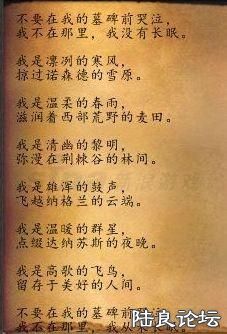 不要在我的墓碑前哭泣，
我不在那里，我没有长眠。
我是凛冽的寒风，
掠过诺森德的雪原。
我是温柔的春雨，
滋润着西部荒野的麦田。
我是清幽的黎明，
弥漫在荆棘谷的林间。
我是雄浑的鼓声，
飞越纳格兰的云端。
我是温暖的群星，
点缀达纳苏斯的夜晚。
我是高歌的飞鸟，
留存于美好的人间。
不要在我的墓碑前
我不在那里，我从
陆良论坛